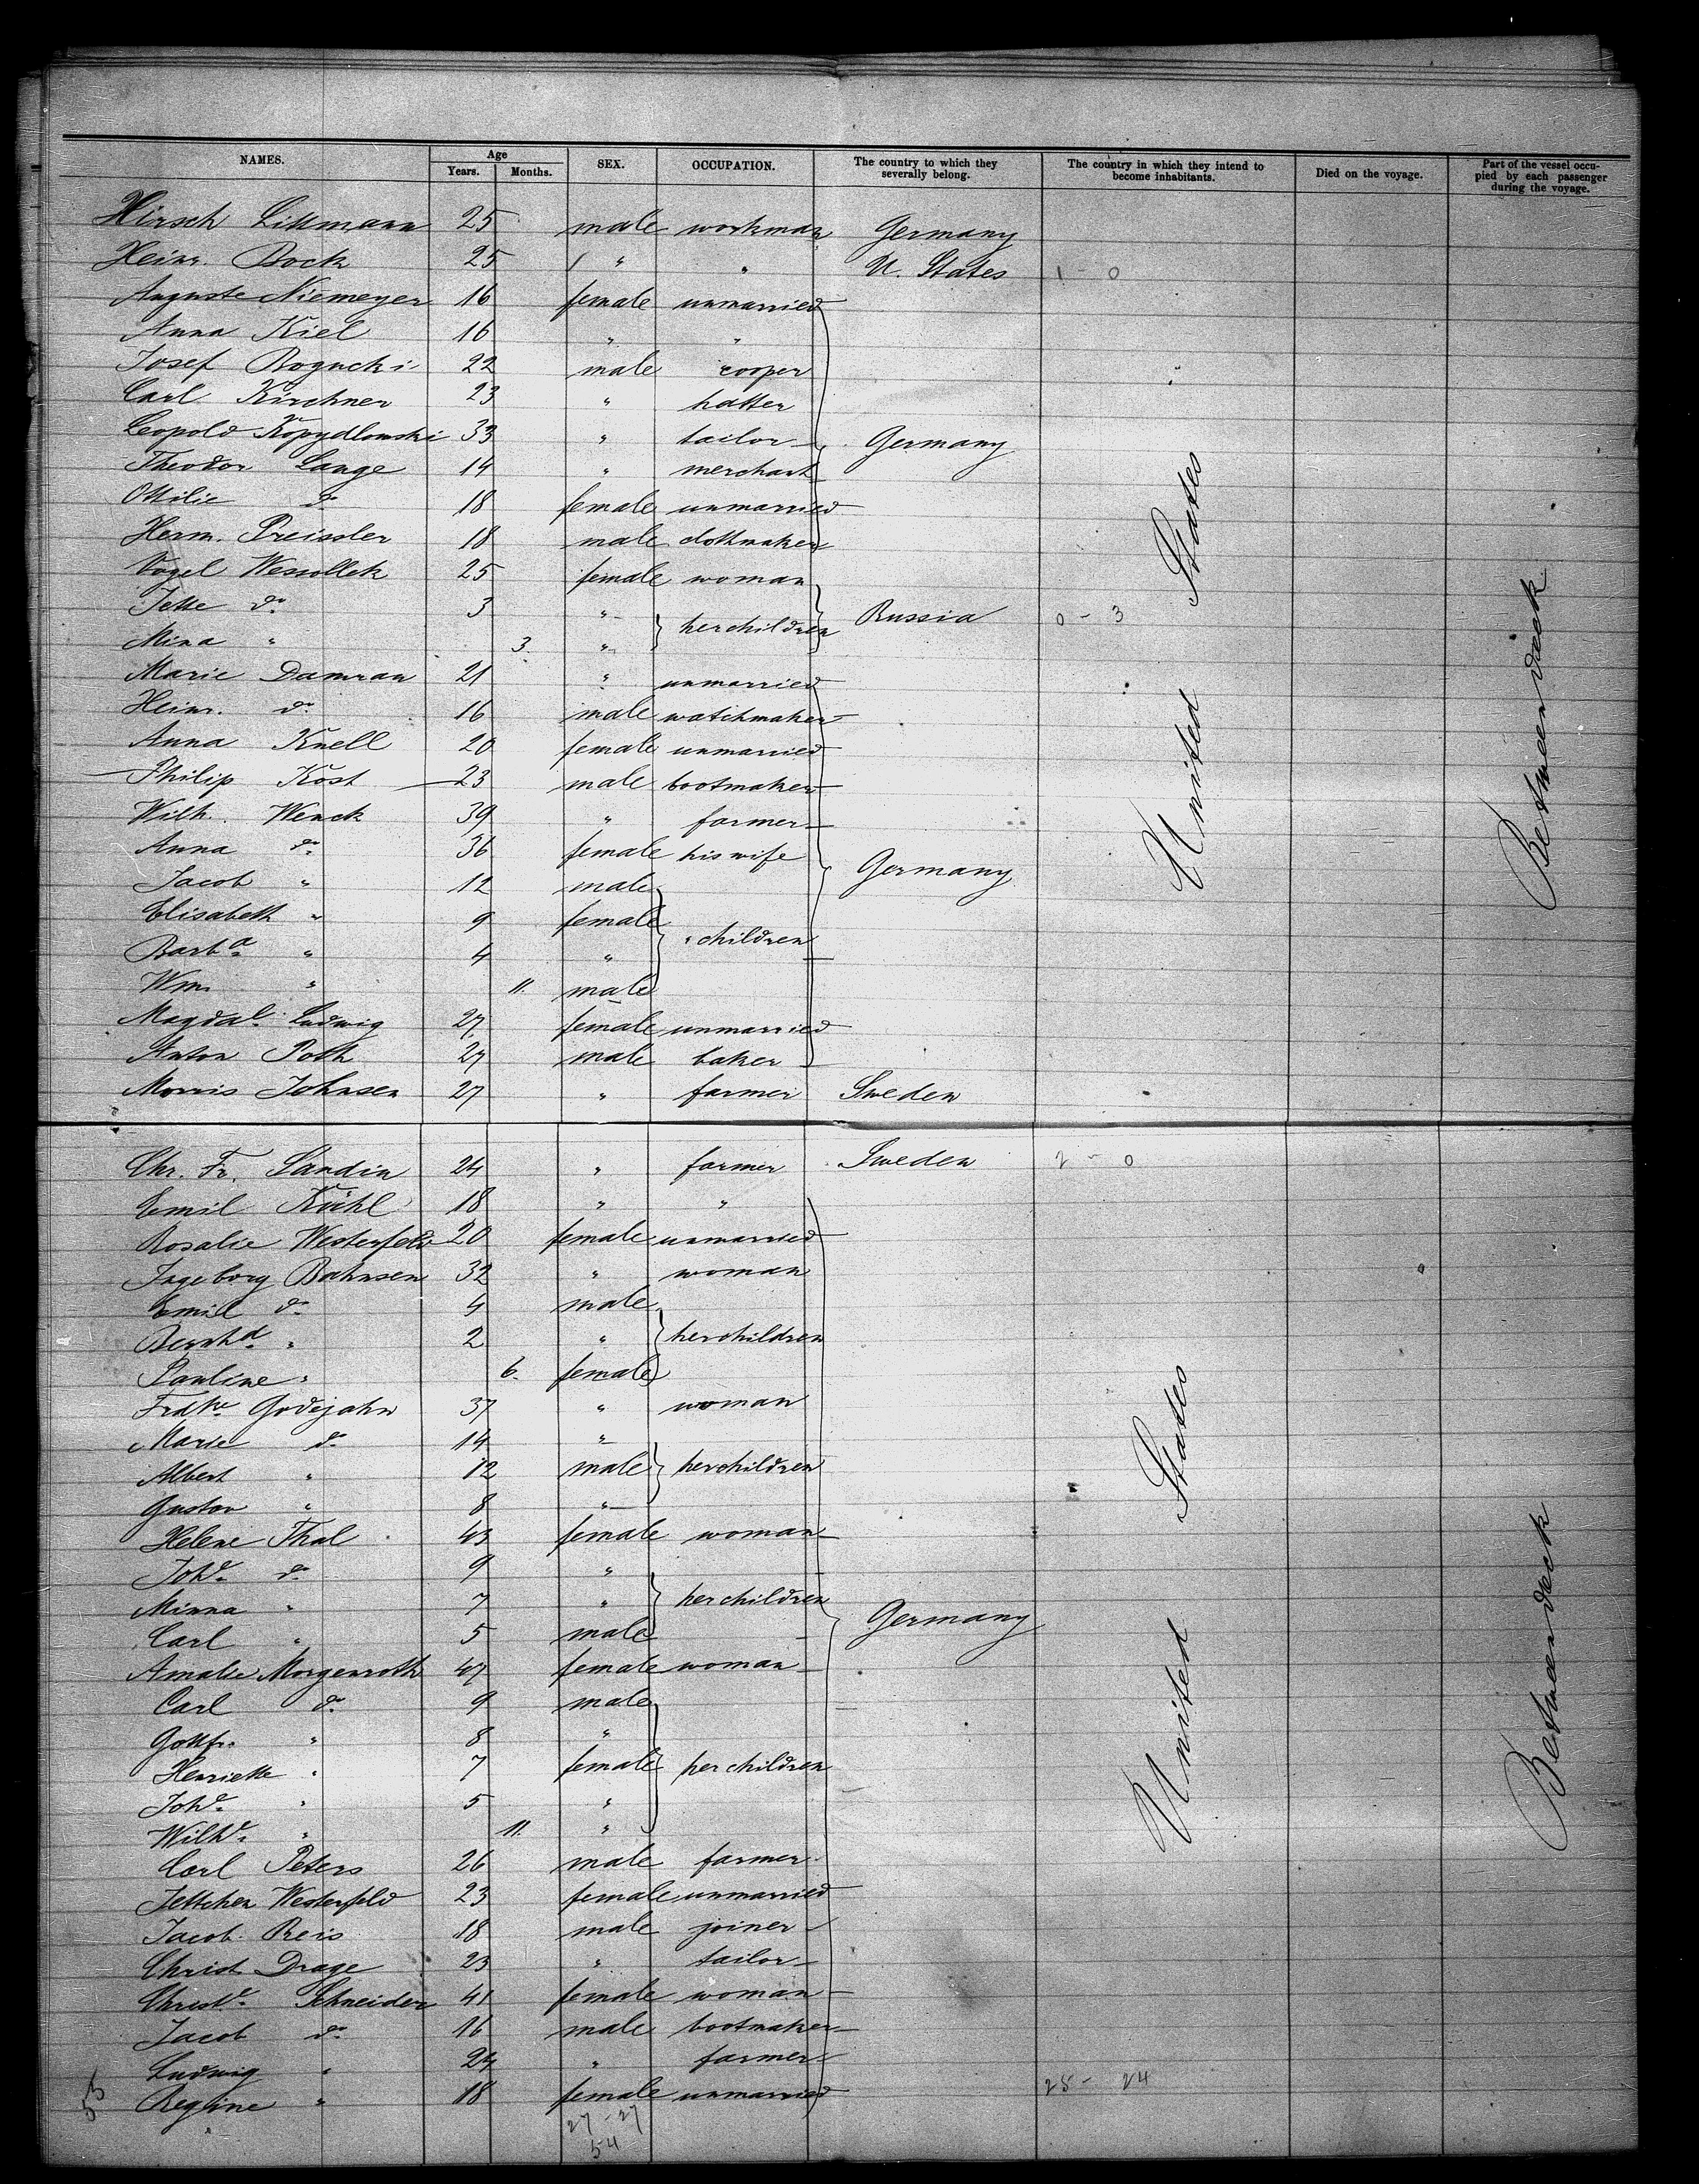 NAMES. Age Years. Months. SEX. OCCUPATION. The country to which they severally belong. The country in which they intend to become inhabitants. Died on the voyage. Part of the vessel occupied by each passenger during the voyage.
Hirsch Littmann 25 male workman Germany
Heinr. Bock 25 " " U. States 1 - 0
Auguste Niemeyer 16 female unmarried
Anna Kiel 16 " "
Josef Bogucki 22 male cooper
Carl Kirchner 23 " hatter
Leopold Kopydlowski 33 " tailor Germany
Theodor Lange 14 " merchant
Ottilie do 18 female unmarried
Herm. Preissler 18 male clothmaker
Vogel Wessollek 25 female woman
Jette do 3 " her children Russia 0 - 3
Mina " 3 "
Marie Damrau 21 " unmarried
Heinr. do 16 male watchmaker
Anna Knell 20 female unmarried
Philip Kost 23 male bootmaker
Wilh. Wenck 39 " farmer
Anna do 36 female his wife Germany
Jacob " 12 male
Elisabeth " 9 female " children
Barba " 4 "
Wm. " 11. male
Magdal. Ludwig 27 female unmarried
Anton Poth 27 male baker
Morris Johnsen 27 " farmer Sweden
United States
Betweendeck
Chr. Fr. Sandin 24 " farmer Sweden 2 - 0
Emil Kühl 18 " "
Rosalie Westerfeld 20 female unmarried
Ingeborg Bahnsen 32 " woman
Emil do 4 male
Bernhd " 2 " her children
Pauline " 6. female
Fradke Godejohn 37 " woman
Marie do 14 "
Albert " 12 male her children
Gustav " 8 "
Helene Thal 43 female woman
Johe do 9 "
Minna " 7 " her children Germany
Carl " 5 male
Amalie Morgenroth 47 female woman
Carl do 9 male
Gottfr. " 8 "
Henriette " 7 female her children
Johe " 5 "
Wilhe " 11. "
Carl Peters 26 male farmer
Jettchen Westerfeld 23 female unmarried
Jacob Reis 18 male joiner
Christ. Drage 23 " tailor
Christe Schneider 41 female woman
Jacob do 16 male bootmaker
Ludwig " 24 " farmer
Regine " 18 female unmarried 25 - 24
United States
Betweendeck
27 - 27
54